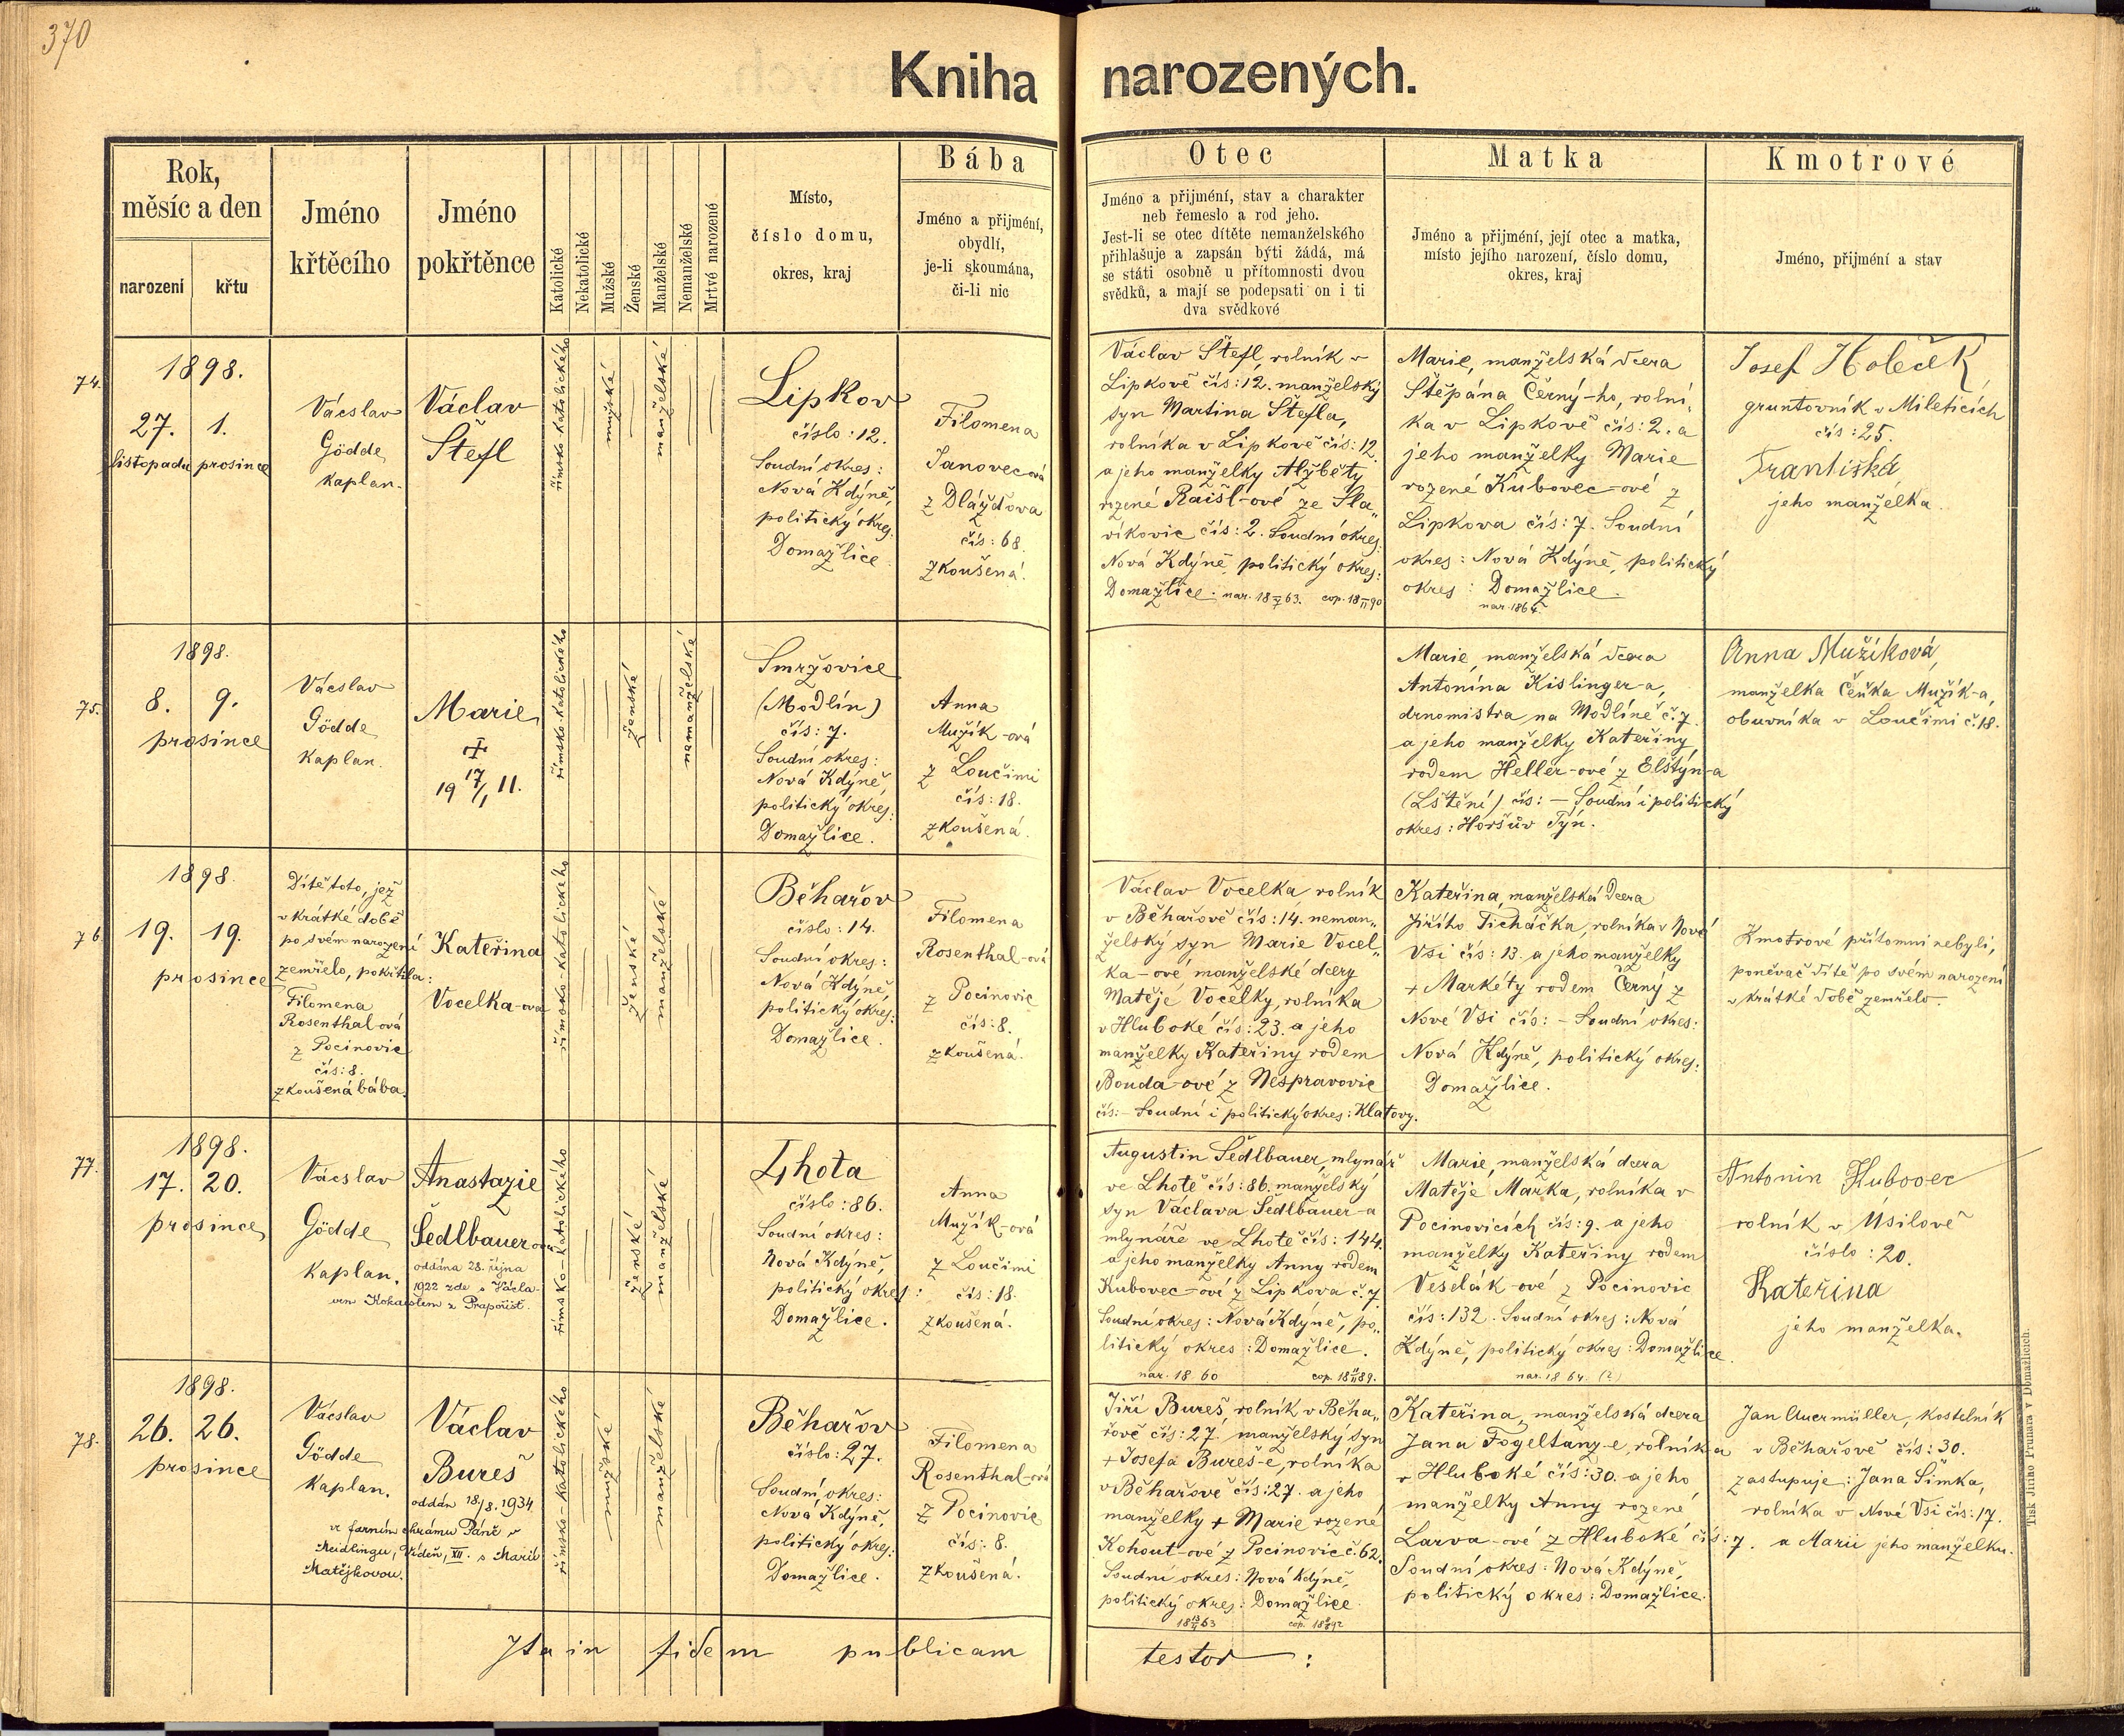 370
Kniha narozených.
Rok,
měsíc a den
narození
křtu
Jméno
křtěcího
Jméno
pokřtěnce
Katolické
Nekatolické
Mužské
Ženské
Manželské
Nemanželské
Mrtvě narozené
Místo,
číslo domu,
okres, kraj
Bába
Jméno a přijmění,
obydlí,
je-li skoumána,
či-li nic
Otec
Jméno a přijmení, stav a charakter
neb řemeslo a rod jeho.
Jest-li se otec dítěte nemanželského
přihlašuje a zapsán býti žádá, má
se státi osobně u přítomnosti dvou
svědků, a mají se podepsati on i ti
dva svědkové
Matka
Jméno a přijmení, její otec a matka,
místo jejího narození, číslo domu,
okres, kraj
Kmotrové
Jméno, přijmení a stav
74.
1898.
27. 1.
listopadu prosince
Václav
Gödde
kaplan.
Václav
Štefl
římsko-katolického
mužské
manželské
Lipkov
číslo: 12.
Soudní okres:
Nová Kdýně,
politický okres:
Domažlice.
Filomena
Janovecová
z Dláždova
čís: 68.
zkoušená.
Václav Štefl, rolník v
Lipkově čís: 12. manželský
syn Martina Štefla,
rolníka v Lipkově čís: 12.
a jeho manželky Alžběty
rozené Raišl-ové ze Sla„
víkovic čís: 2. Soudní okres:
Nová Kdýně, politický okres:
Domažlice. nar. 18 63. cop. 18 90
Marie, manželská dcera
Štěpána Černý-ho, rolní„
ka v Lipkově čís: 2. a
jeho manželky Marie
rozené Kubovec-ové z
Lipkova čís: 7. Soudní
okres: Nová Kdýně, politický
okres: Domažlice.
nar. 1864.
Josef Holeček
gruntovník v Mileticích
čís: 25.
Františka
jeho manželka.
75.
1898.
8. 9.
prosince
Václav
Gödde
kaplan.
Marie
✝
19 17/1 11.
římsko-katolického
ženské
nemanželské
Smržovice
(Modlín)
čís: 7.
Soudní okres:
Nová Kdýně,
politický okres:
Domažlice.
Anna
Mužík-ová
z Loučimi
čís: 18.
zkoušená.
Marie, manželská dcera
Antonína Kislinger-a,
drnomistra na Modlíně č. 7.
a jeho manželky Kateřiny,
rodem Heller-ové z Elštýn-a
(Lštění) čís: – Soudní i politický
okres: Horšův Týn.
Anna Mužíková,
manželka Čeňka Mužík-a,
obuvníka v Loučimi č. 18.
76.
1898.
19. 19.
prosince
Dítě toto, jež
v krátké době
po svém narození
zemřelo, pokřtila:
Filomena
Rosenthalová
z Pocinovic
čís: 8.
zkoušená bába.
Kateřina
Vocelka-ova
římsko-katolického
ženské
manželské
Běhařov
číslo: 14.
Soudní okres:
Nová Kdýně,
politický okres:
Domažlice.
Filomena
Rosenthal-ová
z Pocinovic
čís: 8.
zkoušená.
Václav Vocelka, rolník
v Běhařově čís: 14. neman„
želský syn Marie Vocel„
ka-ové, manželské dcery
Matěje Vocelky, rolníka
v Hluboké čís: 23. a jeho
manželky Kateřiny rodem
Bouda-ové z Nespravovic
čís: – Soudní i politický okres: Klatovy.
Kateřina, manželská dcera
Jiřího Ticháčka, rolníka v Nové
Vsi čís: 13. a jeho manželky
+ Markéty rodem Černý z
Nové Vsi čís: – Soudní okres:
Nová Kdýně, politický okres:
Domažlice.
Kmotrové přítomni nebyli,
poněvač dítě po svém narození
v krátké době zemřelo.
77.
1898.
17. 20.
prosince
Václav
Gödde
kaplan.
Anastazie
Šedlbauerova
oddána 28. října
1922 zde s Václa-
vem z Prapořišť.
římsko-katolického
ženské
manželské
Lhota
číslo: 86.
Soudní okres:
Nová Kdýně,
politický okres:
Domažlice.
Anna
Mužík-ová
z Loučimi
čís: 18.
zkoušená.
Augustin Šedlbauer, mlynář
ve Lhotě čís: 86. manželský
syn Václava Šedlbauer-a
mlynáře ve Lhotě čís: 144.
a jeho manželky Anny rodem
Kubovec-ové z Lipkova č. 7.
Soudní okres: Nová Kdýně, po„
litický okres: Domažlice.
nar. 18 60 cop. 18 89.
Marie, manželská dcera
Matěje Mařka, rolníka v
Pocinovicích čís: 9. a jeho
manželky Kateřiny rodem
Veselák-ové z Pocinovic
čís: 132. Soudní okres: Nová
Kdýně, politický okres: Domažlice.
nar. 1864. (?)
Antonin Kubovec
rolník v Úsilově
číslo: 20.
Kateřina
jeho manželka.
78.
1898.
26. 26.
prosince
Václav
Gödde
kaplan.
Václav
Bureš
oddán 18/8. 1934
ve farním chrámu Páně v
Meidlingu, Vídeň, XII. s Marií
Matějkovou.
římsko-katolického
mužské
manželské
Běhařov
číslo: 27.
Soudní okres:
Nová Kdýně,
politický okres:
Domažlice.
Filomena
Rosenthal-ová
z Pocinovic
čís: 8.
zkoušená.
Jiří Bureš, rolník v Běha„
řově čís: 27. manželský syn
+ Josefa Bureš-e, rolníka
v Běhařově čís: 27. a jeho
manželky + Marie rozené
Kohout-ové z Pocinovic č. 62.
Soudní okres: Nová Kdýně,
politický okres: Domažlice.
18 63 cop. 18 92
Kateřina, manželská dcera
Jana Fogeltanz-e, rolníka
v Hluboké čís: 30. a jeho
manželky Anny rozené
Larva-ové z Hluboké čís: 7.
Soudní okres: Nová Kdýně,
politický okres: Domažlice.
Jan Auermüller, kostelník
v Běhařově čís: 30.
zastupuje: Jana Šimka,
rolníka v Nové Vsi čís: 17.
a Marii jeho manželku.
Ita in fidem publicam testor:
Tisk Jiřího Prunara v Domažlicích.